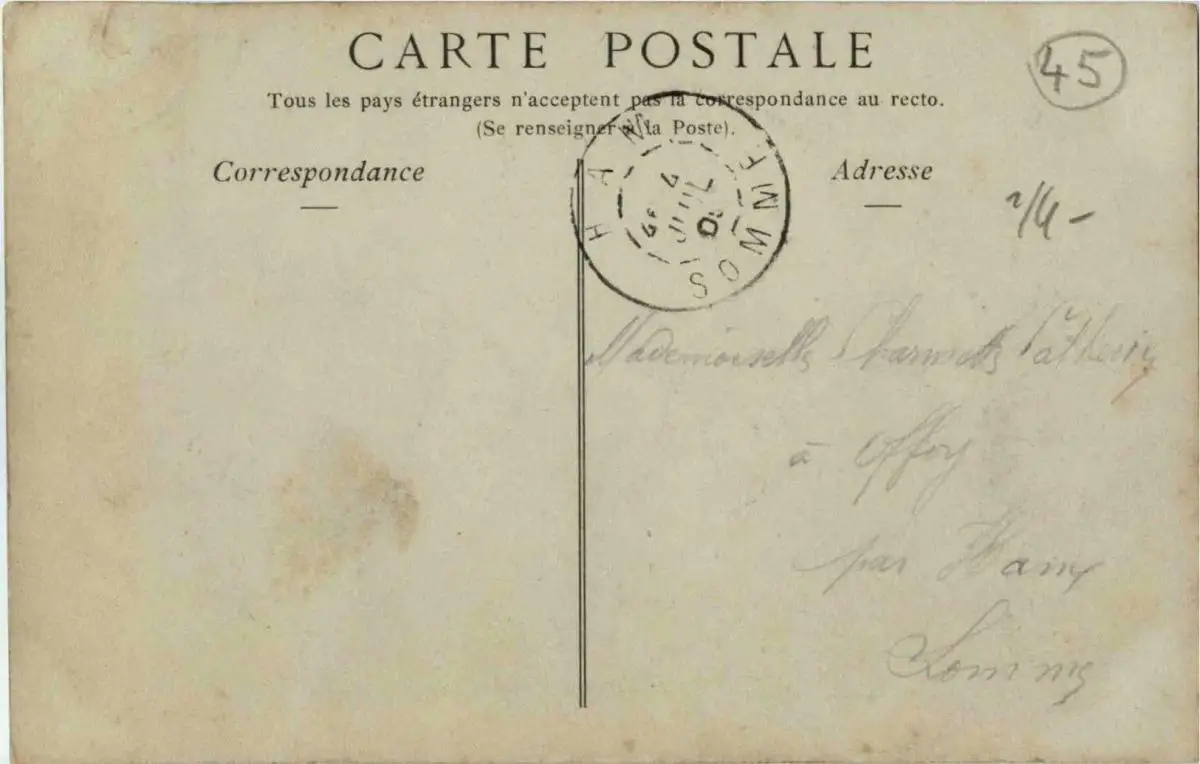 CARTE POSTALE
45
Tous les pays étrangers n'acceptent pas la correspondance au recto.
(Se renseigner à la Poste).
Correspondance
Adresse
HAM
SOMME
4
JUIL
2/4-
Mademoiselle
à Offoy
par Ham
Somme